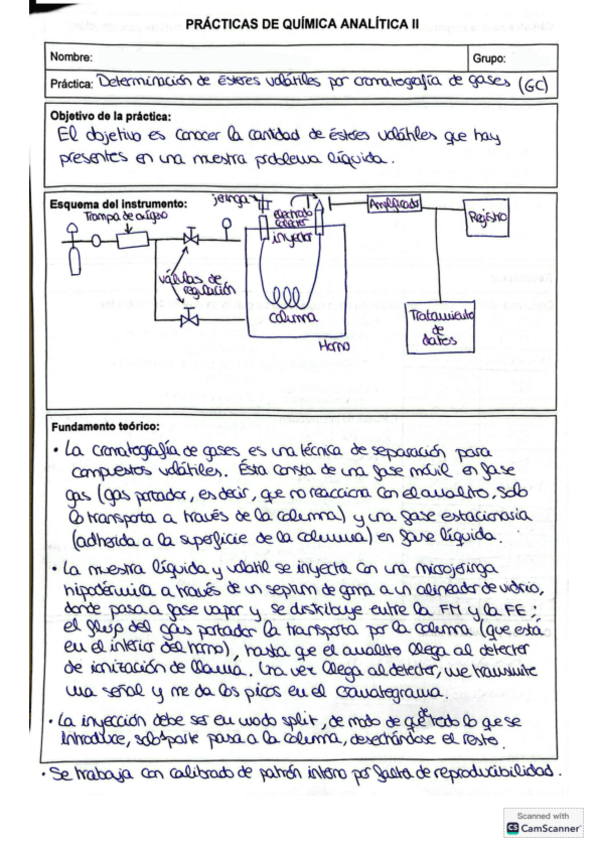 PRÁCTICAS DE QUÍMICA ANALÍTICA II
Nombre:
Grupo:
Práctica: Determinación de ésteres volátiles por cromatografía de gases (GC)
Objetivo de la práctica:
El objetivo es conocer la cantidad de ésteres volátiles que hay
presentes en una muestra problema líquida.
Esquema del instrumento:
Trampa de oxígeno
jeringa
electrodo
colector
inyector
Amplificador
Registro
válvulas de
regulación
columna
Horno
Tratamiento
de
datos
Fundamento teórico:
• La cromatografía de gases es una técnica de separación para
compuestos volátiles. Ésta consta de una fase móvil en fase
gas (gas portador, es decir, que no reacciona con el analito, solo
lo transporta a través de la columna) y una fase estacionaria
(adherida a la superficie de la columna) en fase líquida.
• La muestra líquida y volatil se inyecta con una microjeringa
hipodérmica a través de un septum de goma a un alineador de vidrio,
donde pasa a fase vapor y se distribuye entre la FM y la FE;
el flujo del gas portador la transporta por la columna (que está
en el interior del horno), hasta que el analito llega al detector
de ionización de llama. Una vez llega al detector, me transmite
una señal y me da los picos en el cromatograma.
• La inyección debe ser en modo split, de modo de que de todo lo que se
introduce, solo 1 parte pasa a la columna, desechándose el resto.
• Se trabaja con calibrado de patrón interno por falta de reproducibilidad.
Scanned with
CS CamScanner